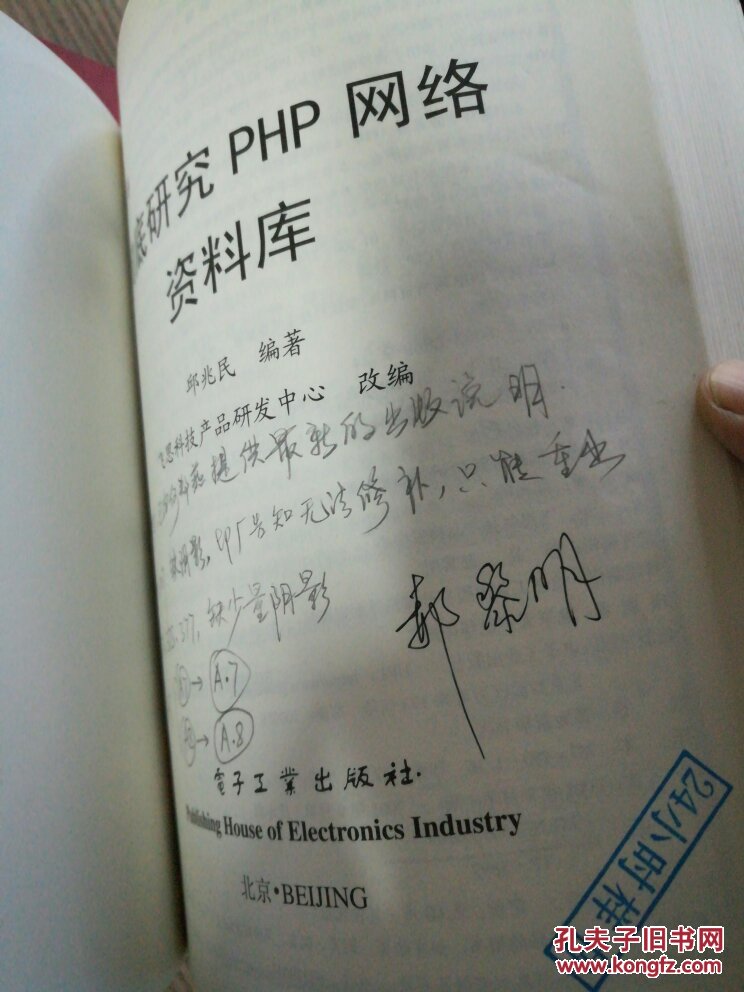 底研究 PHP 网络
资料库
邱兆民 编著
飞思科技产品研发中心 改编
提供最新的出版说明.
阴影,印厂告知无法修补,只能重出
377,缺少量阴影
郝黎明
→ A.7
→ A.8
電子工業出版社.
Publishing House of Electronics Industry
北京·BEIJING
24小时样
孔夫子旧书网
www.kongfz.com